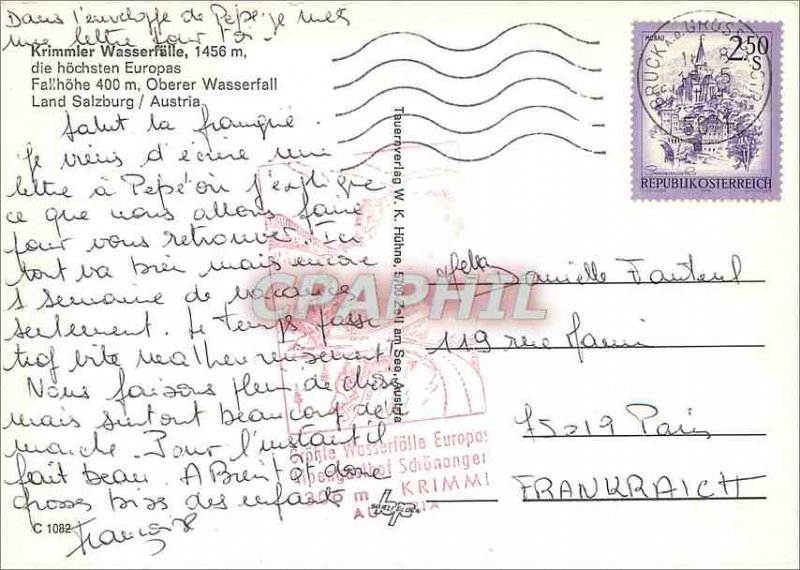 Dans l'enveloppe de Pepé je mets
une lettre pour toi.
Krimmler Wasserfälle, 1456 m,
die höchsten Europas
Fallhöhe 400 m, Oberer Wasserfall
Land Salzburg / Austria
Salut la
Je viens d'écrire une
lettre à Pepé où j'explique
ce que nous allons faire
pour vous retrouver. Ici
tout va bien mais encore
1 semaine de vacance
seulement. Le temps passe
trop vite malheureusement!
Nous faisons plein de choses
mais surtout beaucoup de la
marche. Pour l'instant il
fait beau. A Bientôt donc
grosses bises des enfants
C 1082
Françoise
Tauernverlag W. K. Hühne, 5700 Zell am See, Austria
MURAU
2.50
S
REPUBLIK ÖSTERREICH
BRUCK A.D.
Danielle Fauteul
119 rue
75019 Paris
FRANKRAICH
Größte Wasserfälle Europas
Alpengasthof Schönangerl
1300 m KRIMML
AUSTRIA
CPAPHIL